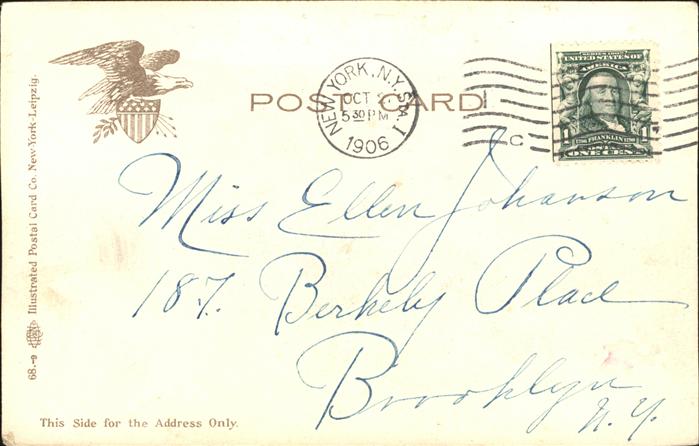 POST CARD
NEW YORK, N.Y. STA. I
OCT
5 30 PM
1906
C
SERIES 1902
UNITED STATES OF
AMERICA
FRANKLIN
ONE CENT
Miss Ellen Johanson
187. Berkely Place
Brooklyn
N.Y.
68.-9 Illustrated Postal Card Co. New-York-Leipzig.
This Side for the Address Only.